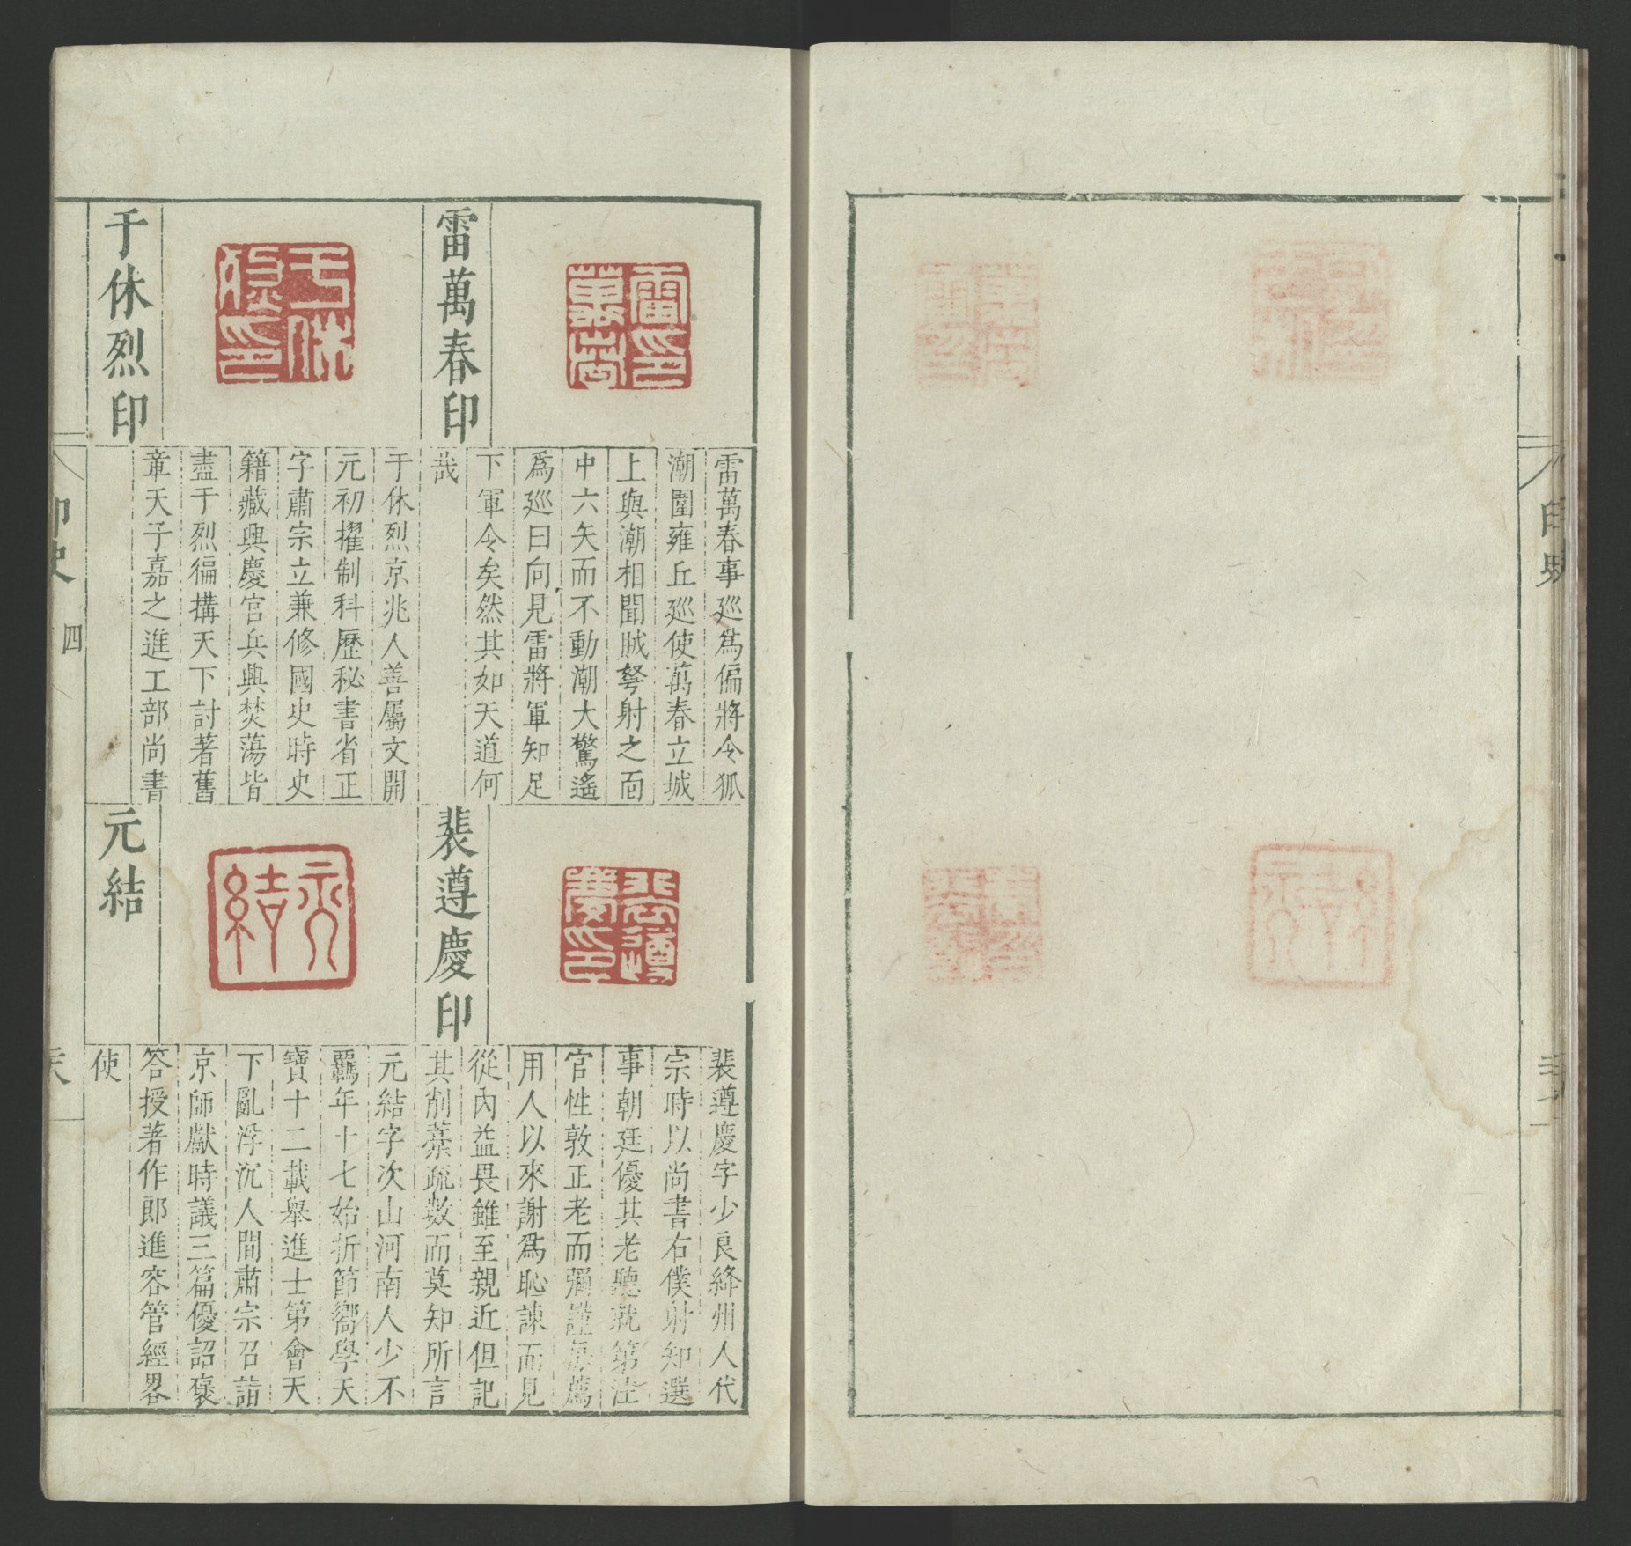 雷萬春印
雷萬春事廵爲偏將令狐
潮圍雍丘廵使萬春立城
上與潮相聞賊弩射之面
中六矢而不動潮大驚遙
爲廵曰向見雷將軍知足
下軍令矣然其如天道何
哉
于休烈印
于休烈京兆人善屬文開
元初擢制科歷秘書省正
字肅宗立兼修國史時史
籍藏興慶官兵興焚蕩皆
盡于烈徧搆天下討著舊
章天子嘉之進工部尚書
裴遵慶印
裴遵慶字少良絳州人代
宗時以尚書右僕射知選
事朝廷優其老聽就第注
官性敦正老而彌謹每薦
用人以來謝爲恥諫而見
從內益畏雖至親近但記
其削藁疏數而莫知所言
元結
元結字次山河南人少不
羈年十七始折節嚮學天
寶十二載舉進士第會天
下亂浮沉人間肅宗召詣
京師獻時議三篇優詔褒
答授著作郎進容管經畧
使
印史
四